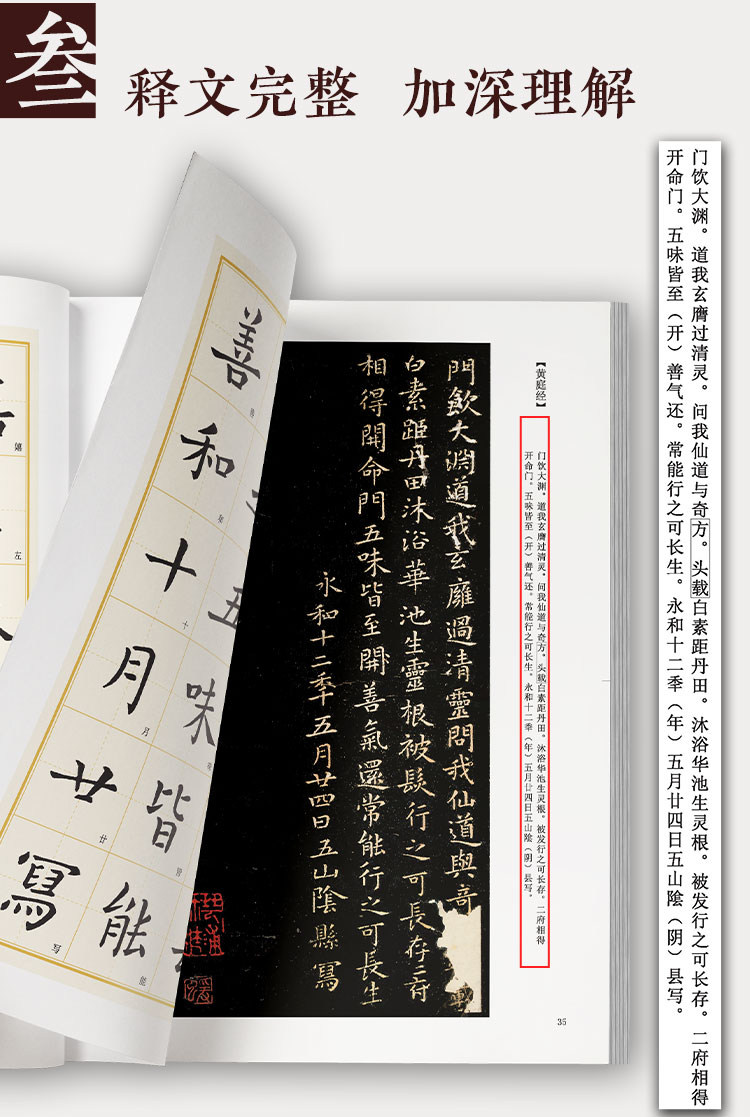 叁
释文完整 加深理解
门饮大渊。道我玄膺过清灵。问我仙道与奇方。头载白素距丹田。沐浴华池生灵根。被发行之可长存。二府相得
开命门。五味皆至（开）善气还。常能行之可长生。永和十二季（年）五月廿四日五山陰（阴）县写。
【黄庭经】
门饮大渊。道我玄膺过清灵。问我仙道与奇方。头载白素距丹田。沐浴华池生灵根。被发行之可长存。二府相得
开命门。五味皆至（开）善气还。常能行之可长生。永和十二季（年）五月廿四日五山陰（阴）县写。
門飲大渊道我玄膺過清靈問我仙道與奇
白素距丹田沐浴華池生靈根被髮行之可長存二府
相得開命門五味皆至開善氣還常能行之可長生
永和十二季五月廿四日五山陰縣寫
五味皆能
能
善和十月廿寫
善
和
十
月
廿
写
嬉
左
35